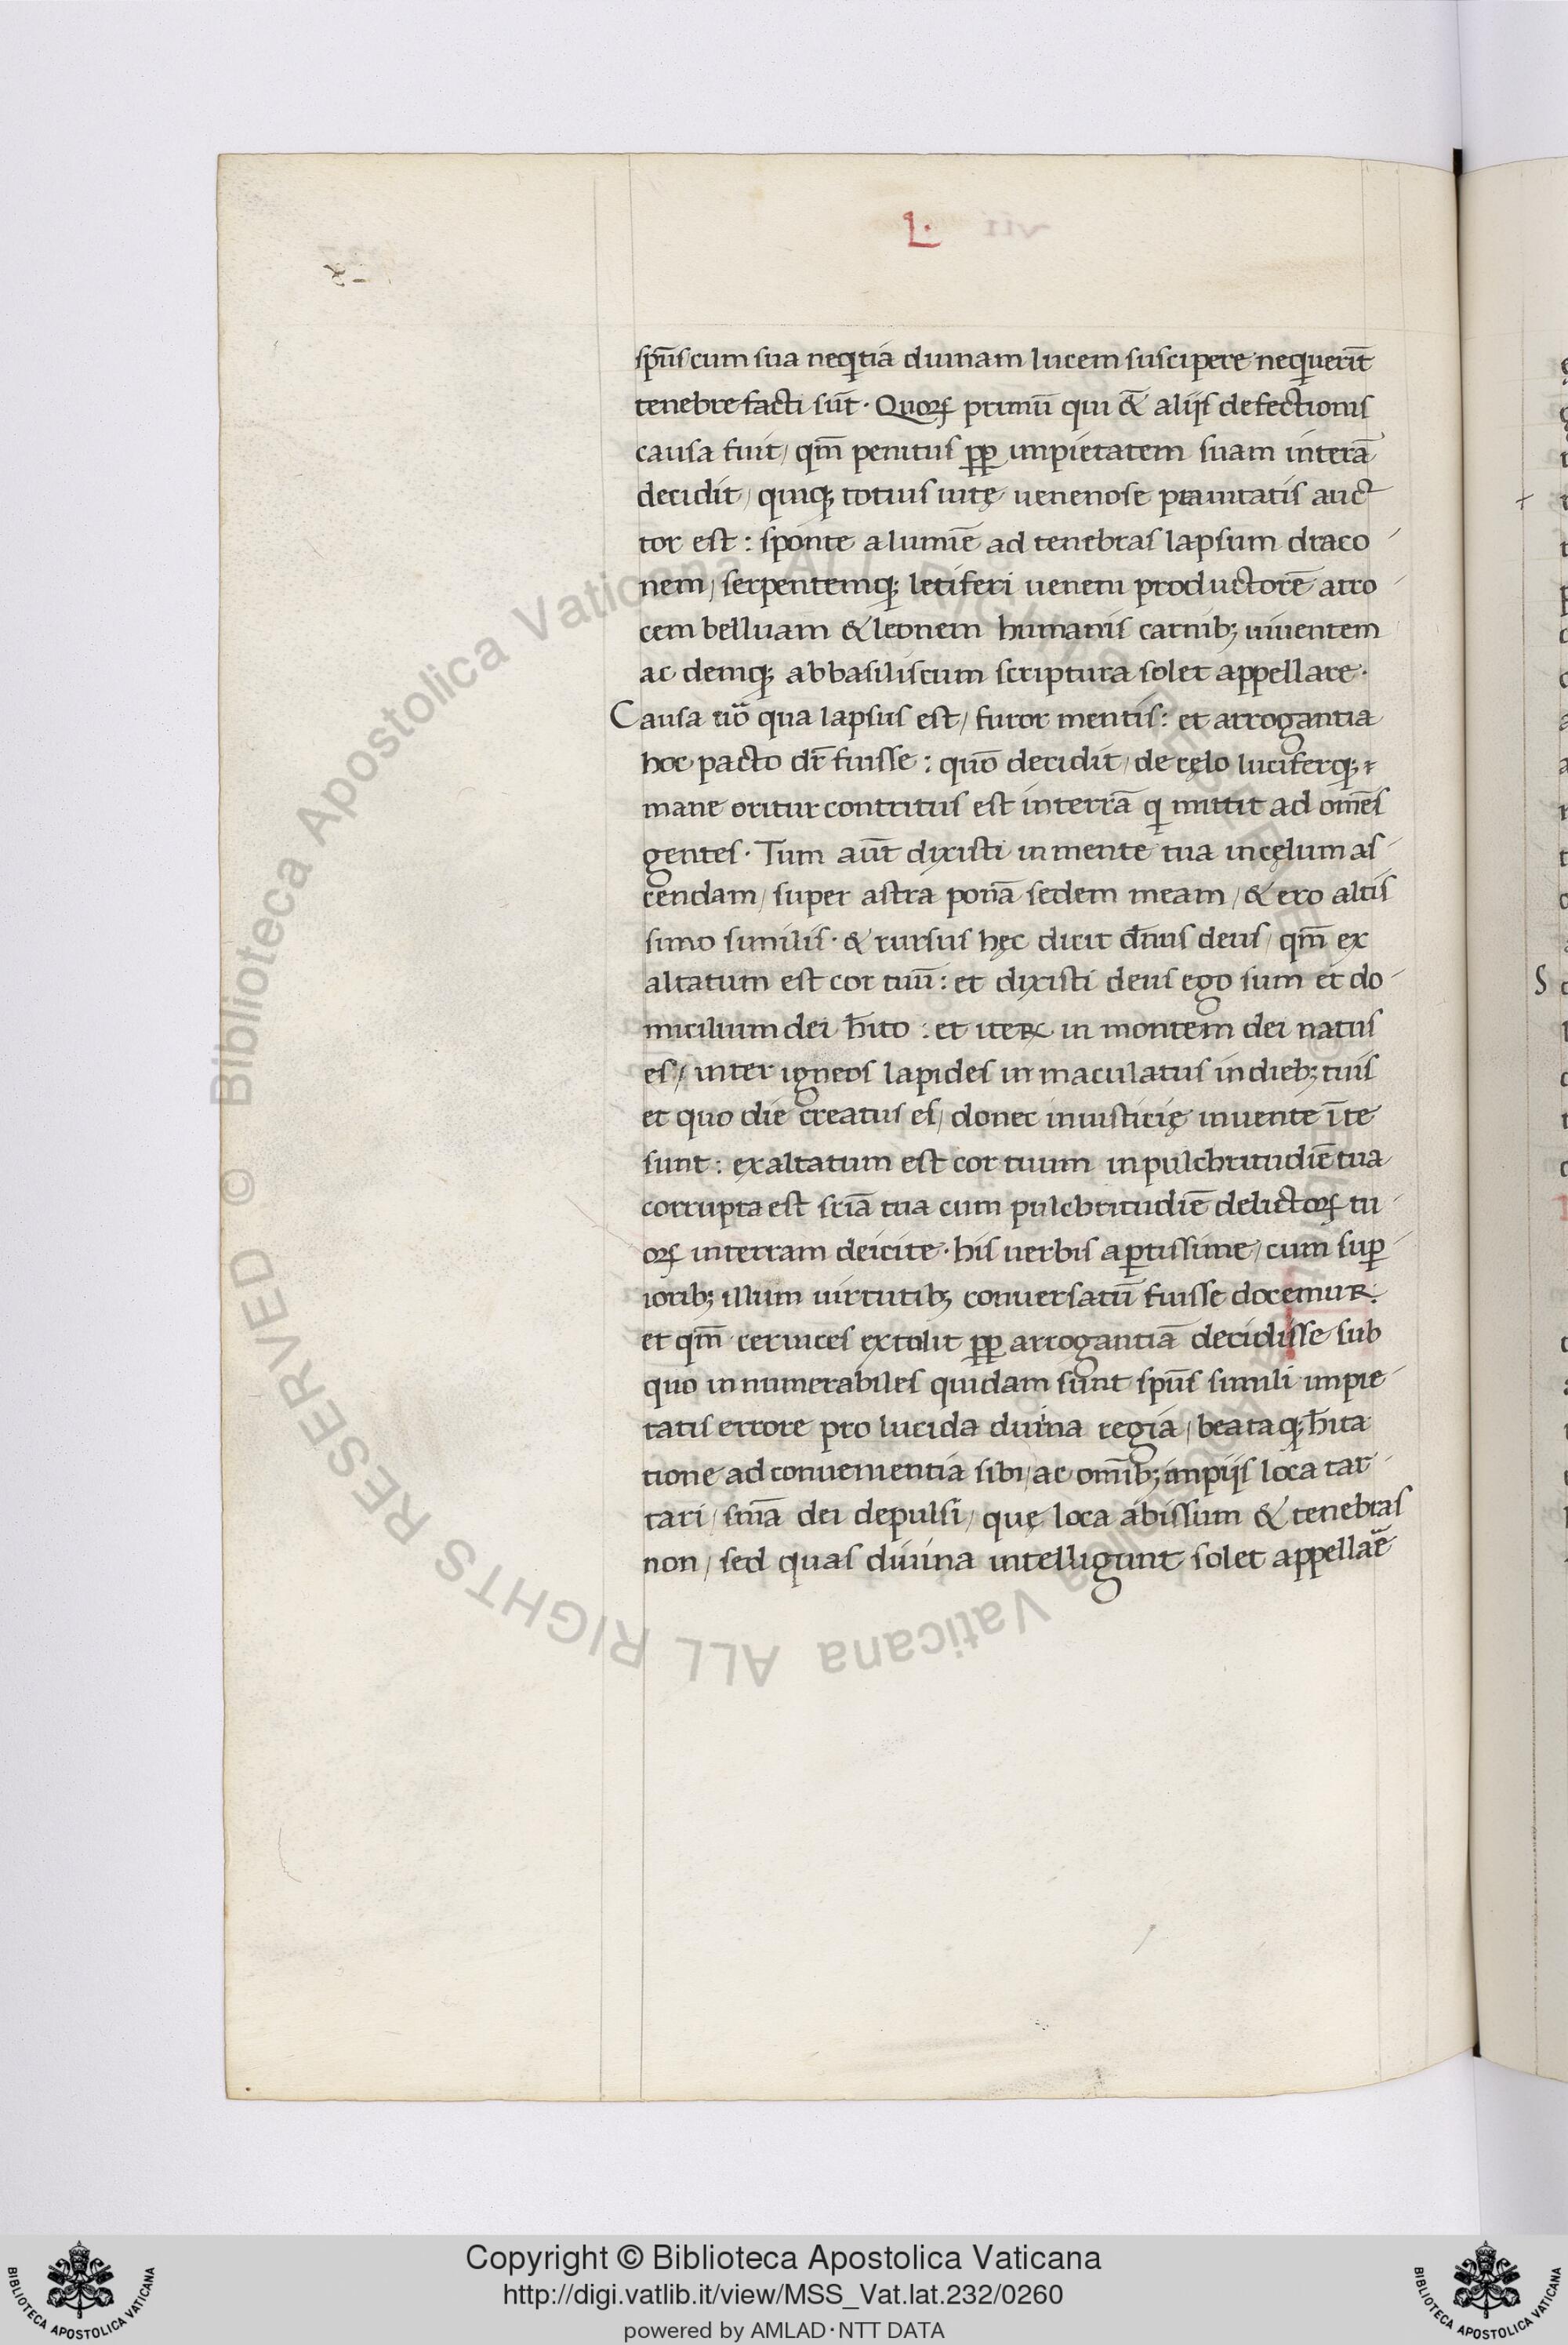 L·
sp̄us cum sua neq̇tia diuinam lucem suscipere nequiuerīt
tenebre facti sūt · Quorꝝ primū qui & alijs defectionis
causa fuit / qm̄ penitus ꝓp impietatem suam interā
decidit / quiqꝫ totius uitę uenenose prauitatis auc
tor est : sponte a lumīe ad tenebras lapsum draco
nem / serpentemqꝫ letiferi ueneni productorē atro
cem belluam & leonem humanis carnibꝫ uiuentem
ac deniqꝫ abbasiliscum scriptura solet appellare ·
Causa uō qua lapsus est / furor mentis : et arrogantia
hoc pacto dr̄ fuisse : quō decidit / de cęlo luciferqꝫ
mane oritur contritus est interrā q mittit ad om̄es
gentes · Tum aūt dixisti inmente tua incęlum as
cendam / super astra ponā sedem meam / & ero altis
simo similis · & rursus hęc dicit dn̄us deus / qm̄ ex
altatum est cor tuū : et dixisti deus ego sum et do
micilium dei h̄ito : et iteꝝ in montem dei natus
es / inter igneos lapides inmaculatus indiebꝫ tuis
et quo die creatus es / donec iniusticię inuente ī te
sunt : exaltatum est cor tuum inpulchritudīe tua
corrupta est sciā tua cum pulchritudīe delictorꝝ tu
orꝝ interram deicite · his uerbis aꝑtissime / cum suꝑ
ioribꝫ illum uirtutibꝫ conuersatū fuisse docemur :
et qm̄ ceruices extulit ꝓp arrogantiā decidisse sub
quo innumerabiles quidam sunt sp̄us simili impie
tatis errore pro lucida diuina regia / beataqꝫ h̄ita
tione ad conuenientia sibi / ac om̄ibꝫ impijs loca tar
tari / sn̄ia dei depulsi / quę loca abissum & tenebras
non / sed quas diuina intelligunt solet appellāe
Copyright © Biblioteca Apostolica Vaticana
http://digi.vatlib.it/view/MSS_Vat.lat.232/0260
powered by AMLAD·NTT DATA
BIBLIOTECA APOSTOLICA VATICANA
BIBLIOTECA APOSTOLICA VATICANA
© Biblioteca Apostolica Vaticana ALL RIGHTS RESERVED © Biblioteca Apostolica Vaticana ALL RIGHTS RESERVED